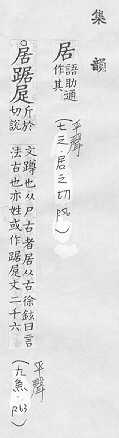 集韻
居 語助通作其 平聲(七之·居之切
居踞𡱒 斤於切說文蹲也从尸古者居从古徐鉉曰言法古也亦姓或作踞𡱒文二十六 平聲(九魚·